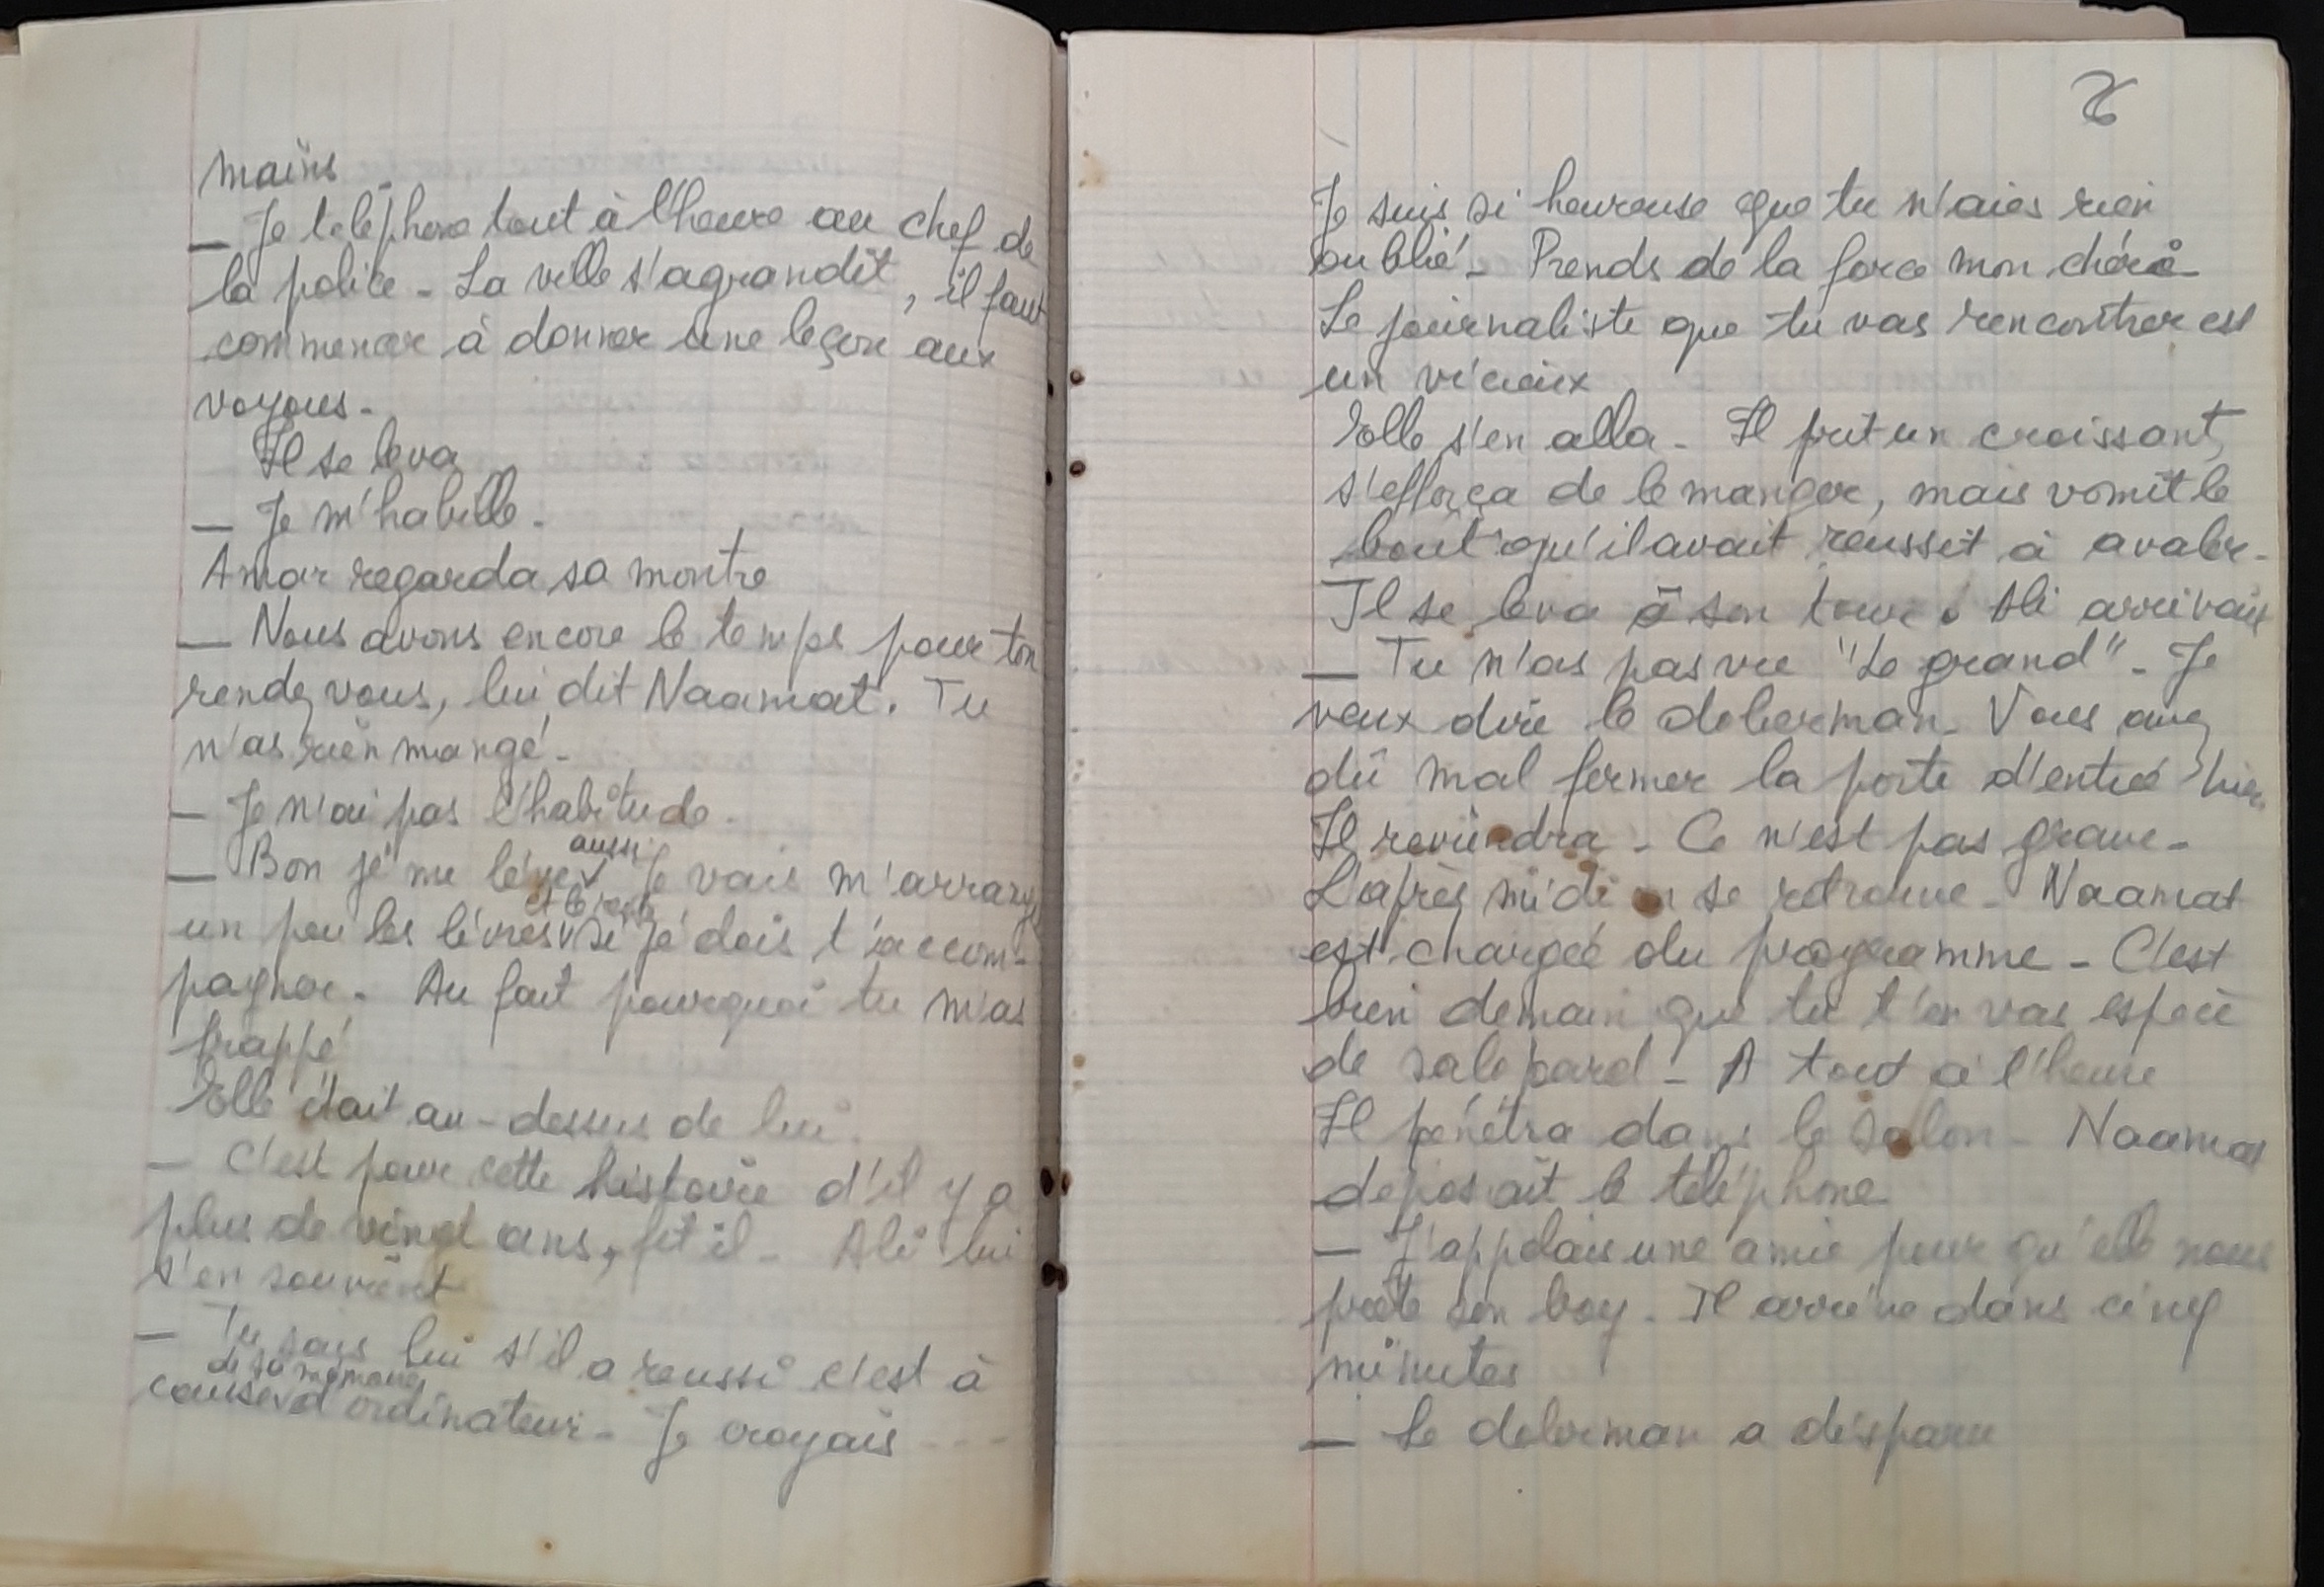 mains
— Je telephone tout à l'heure au chef de
la police - La ville s'agrandit, il faut
commencer à donner une leçon aux
voyous -
Il se leva
— Je m'habille -
Amar regarda sa montre
— Nous avons encore le temps pour ton
rendez vous, lui dit Naamat. Tu
n'as rien mangé -
— Je n'ai pas l'habitude -
— Bon je me lève aussi. Je vais m'arranger
un peu les lèvres et le reste si je dois t'accom-
pagner. Au fait pourquoi tu m'as
frappé
Elle était au-dessus de lui.
— C'est pour cette histoire d'il y a
plus de vingt ans, fit il - Ali lui
s'en souvient
— Tu sais lui s'il a reussi c'est à
cause de sa mémoire d'ordinateur - Je croyais ...
Je suis si heureuse que tu n'aies rien
oublié - Prends de la force mon chéri
Le journaliste que tu vas rencontrer est
un vicieux
Elle s'en alla - Il prit un croissant,
s'efforça de le manger, mais vomit le
bout qu'il avait réussit à avaler -
Il se leva à son tour. Ali arrivait
— Tu n'as pas vu "Le grand" - Je
veux dire le doberman - Vous avez
dû mal fermer la porte d'entrée hier
Il reviendra - Ce n'est pas grave -
L'après midi on se retrouve - Naamat
est chargée du programme - C'est
bien demain que tu t'en vas espèce
de salopard - A tout à l'heure
Il pénétra dans le salon - Naamat
deposait le téléphone
— J'appelais une amie pour qu'elle nous
prête son boy - Il arrive dans cinq
minutes
— Le doberman a disparu